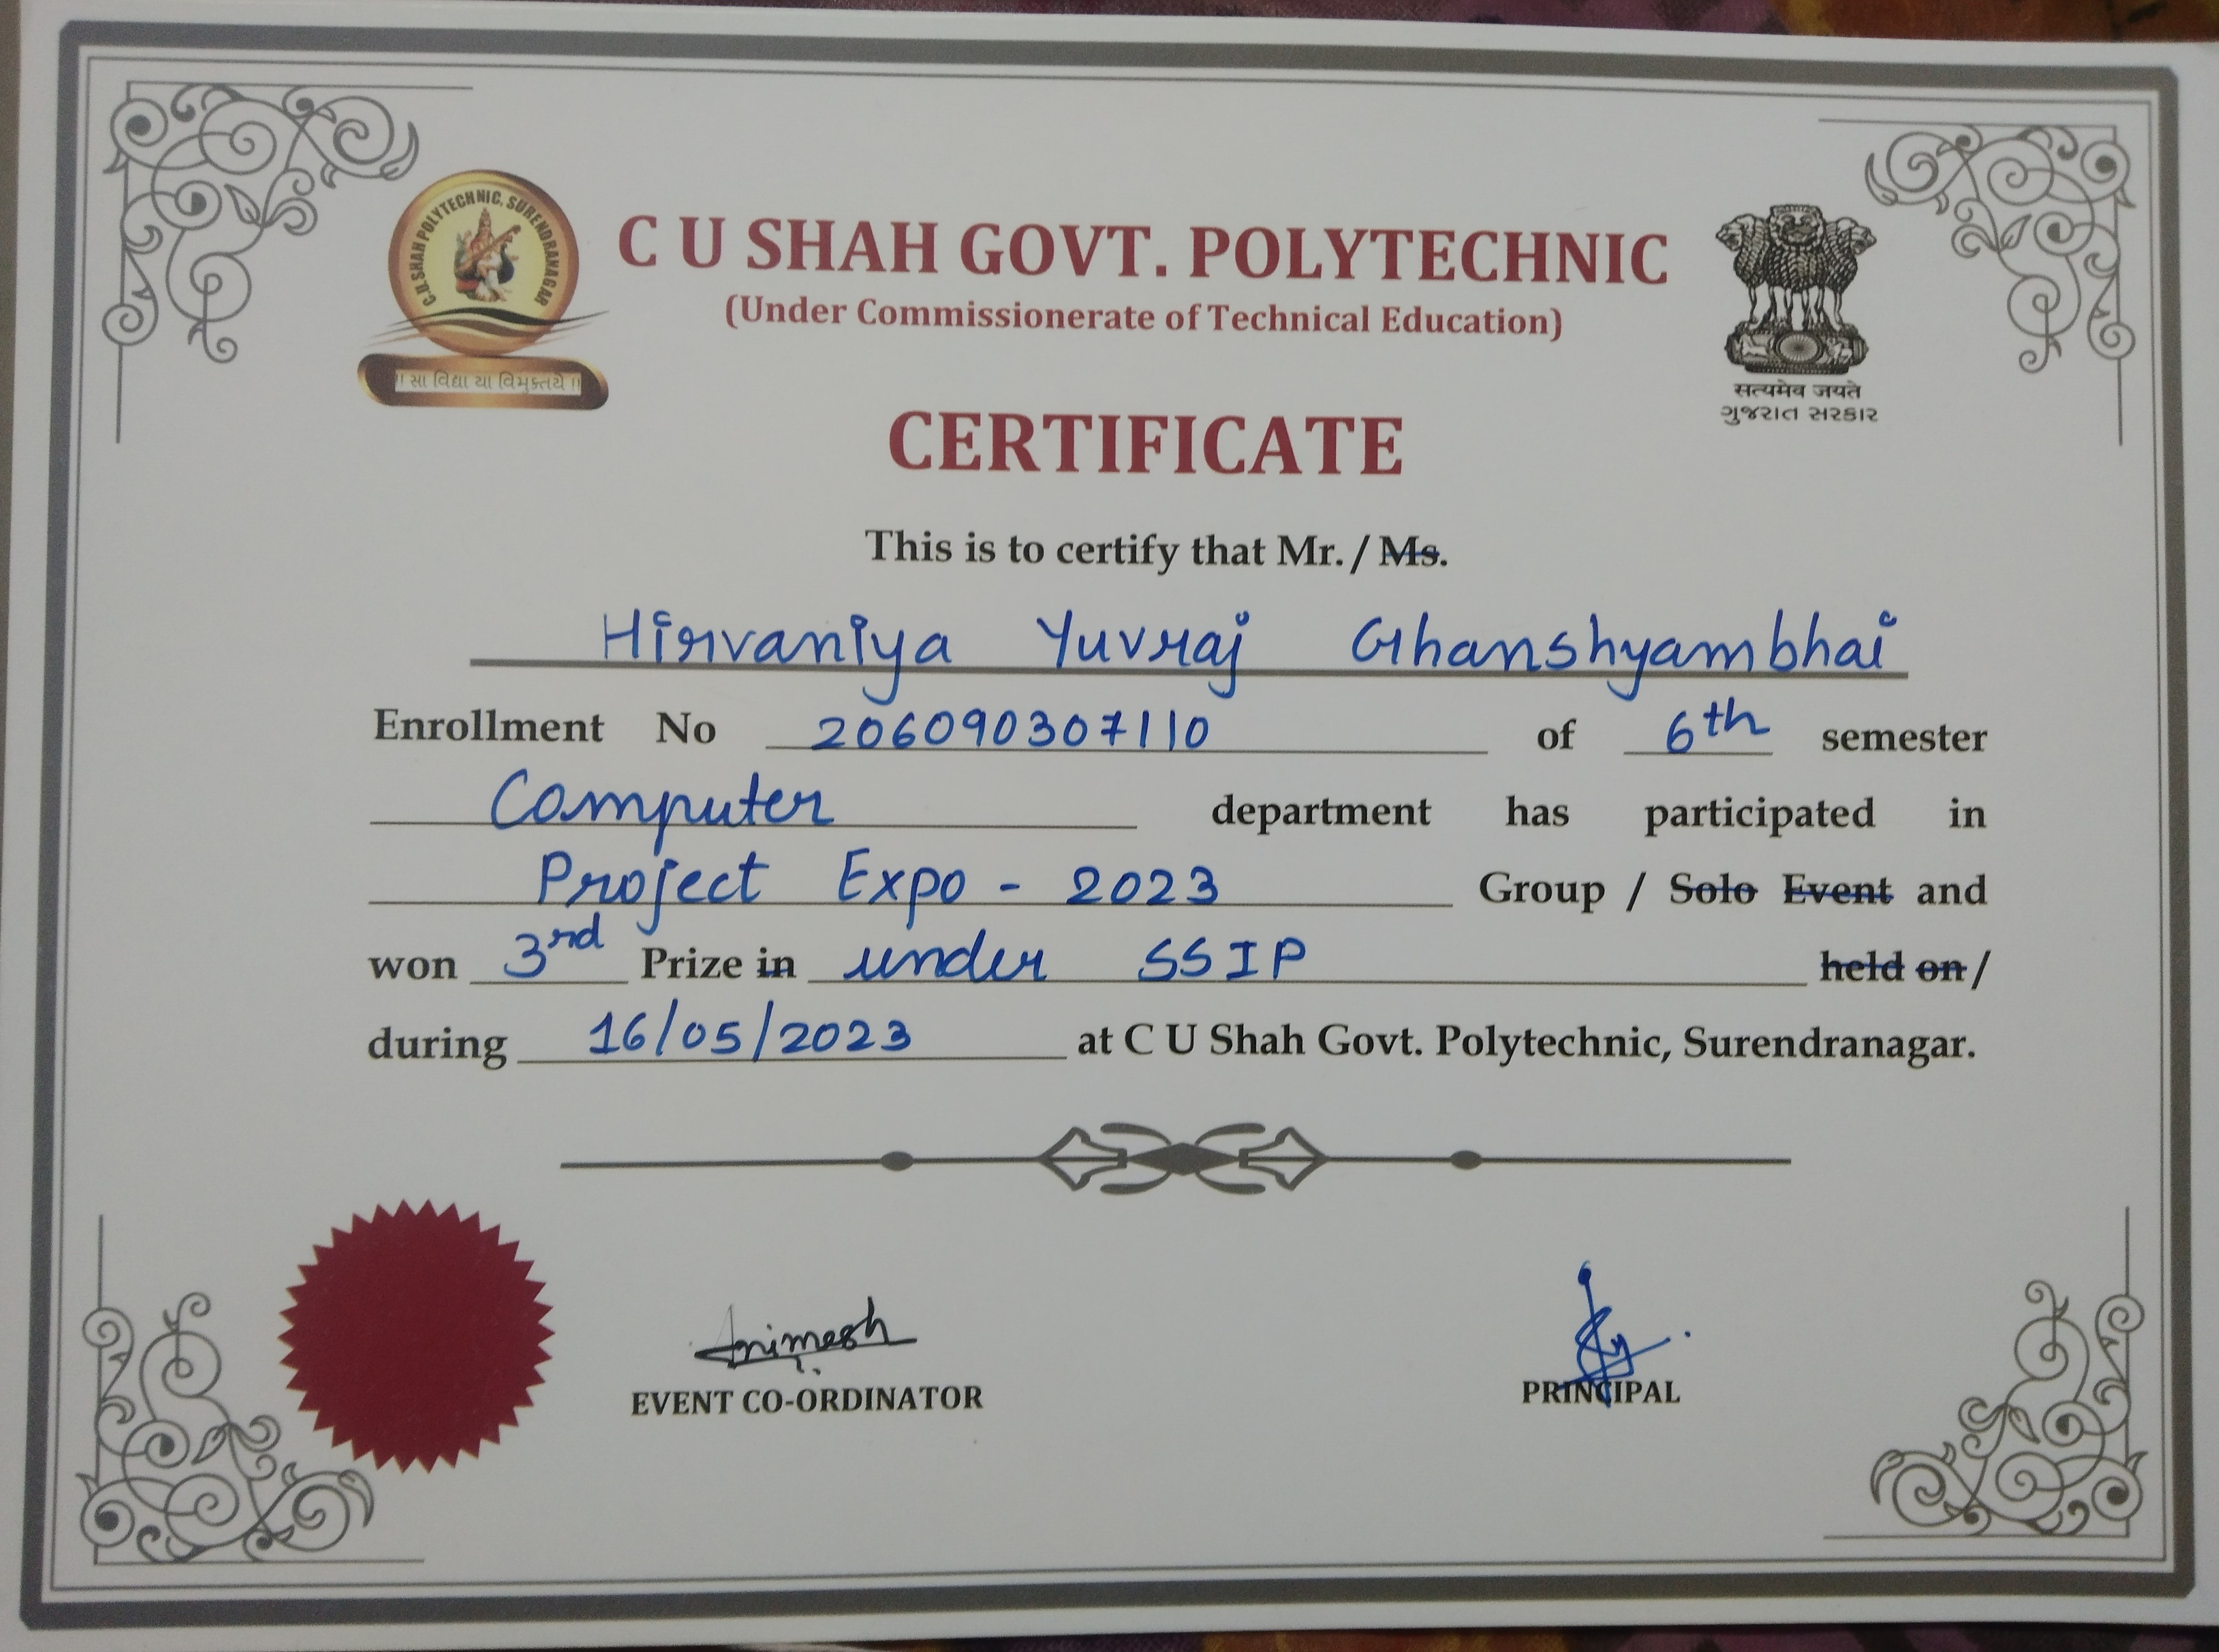 C.U. SHAH POLYTECHNIC, SURENDRANAGAR
!! सा विद्या या विमुक्तये !!
C U SHAH GOVT. POLYTECHNIC
(Under Commissionerate of Technical Education)
सत्यमेव जयते
ગુજરાત સરકાર
CERTIFICATE
This is to certify that Mr. / Ms.
Hirvaniya Yuvraj Ghanshyambhai
Enrollment No 206090307110 of 6th semester
Computer department has participated in
Project Expo - 2023 Group / Solo Event and
won 3rd Prize in under SSIP held on /
during 16/05/2023 at C U Shah Govt. Polytechnic, Surendranagar.
Animesh
EVENT CO-ORDINATOR
PRINCIPAL